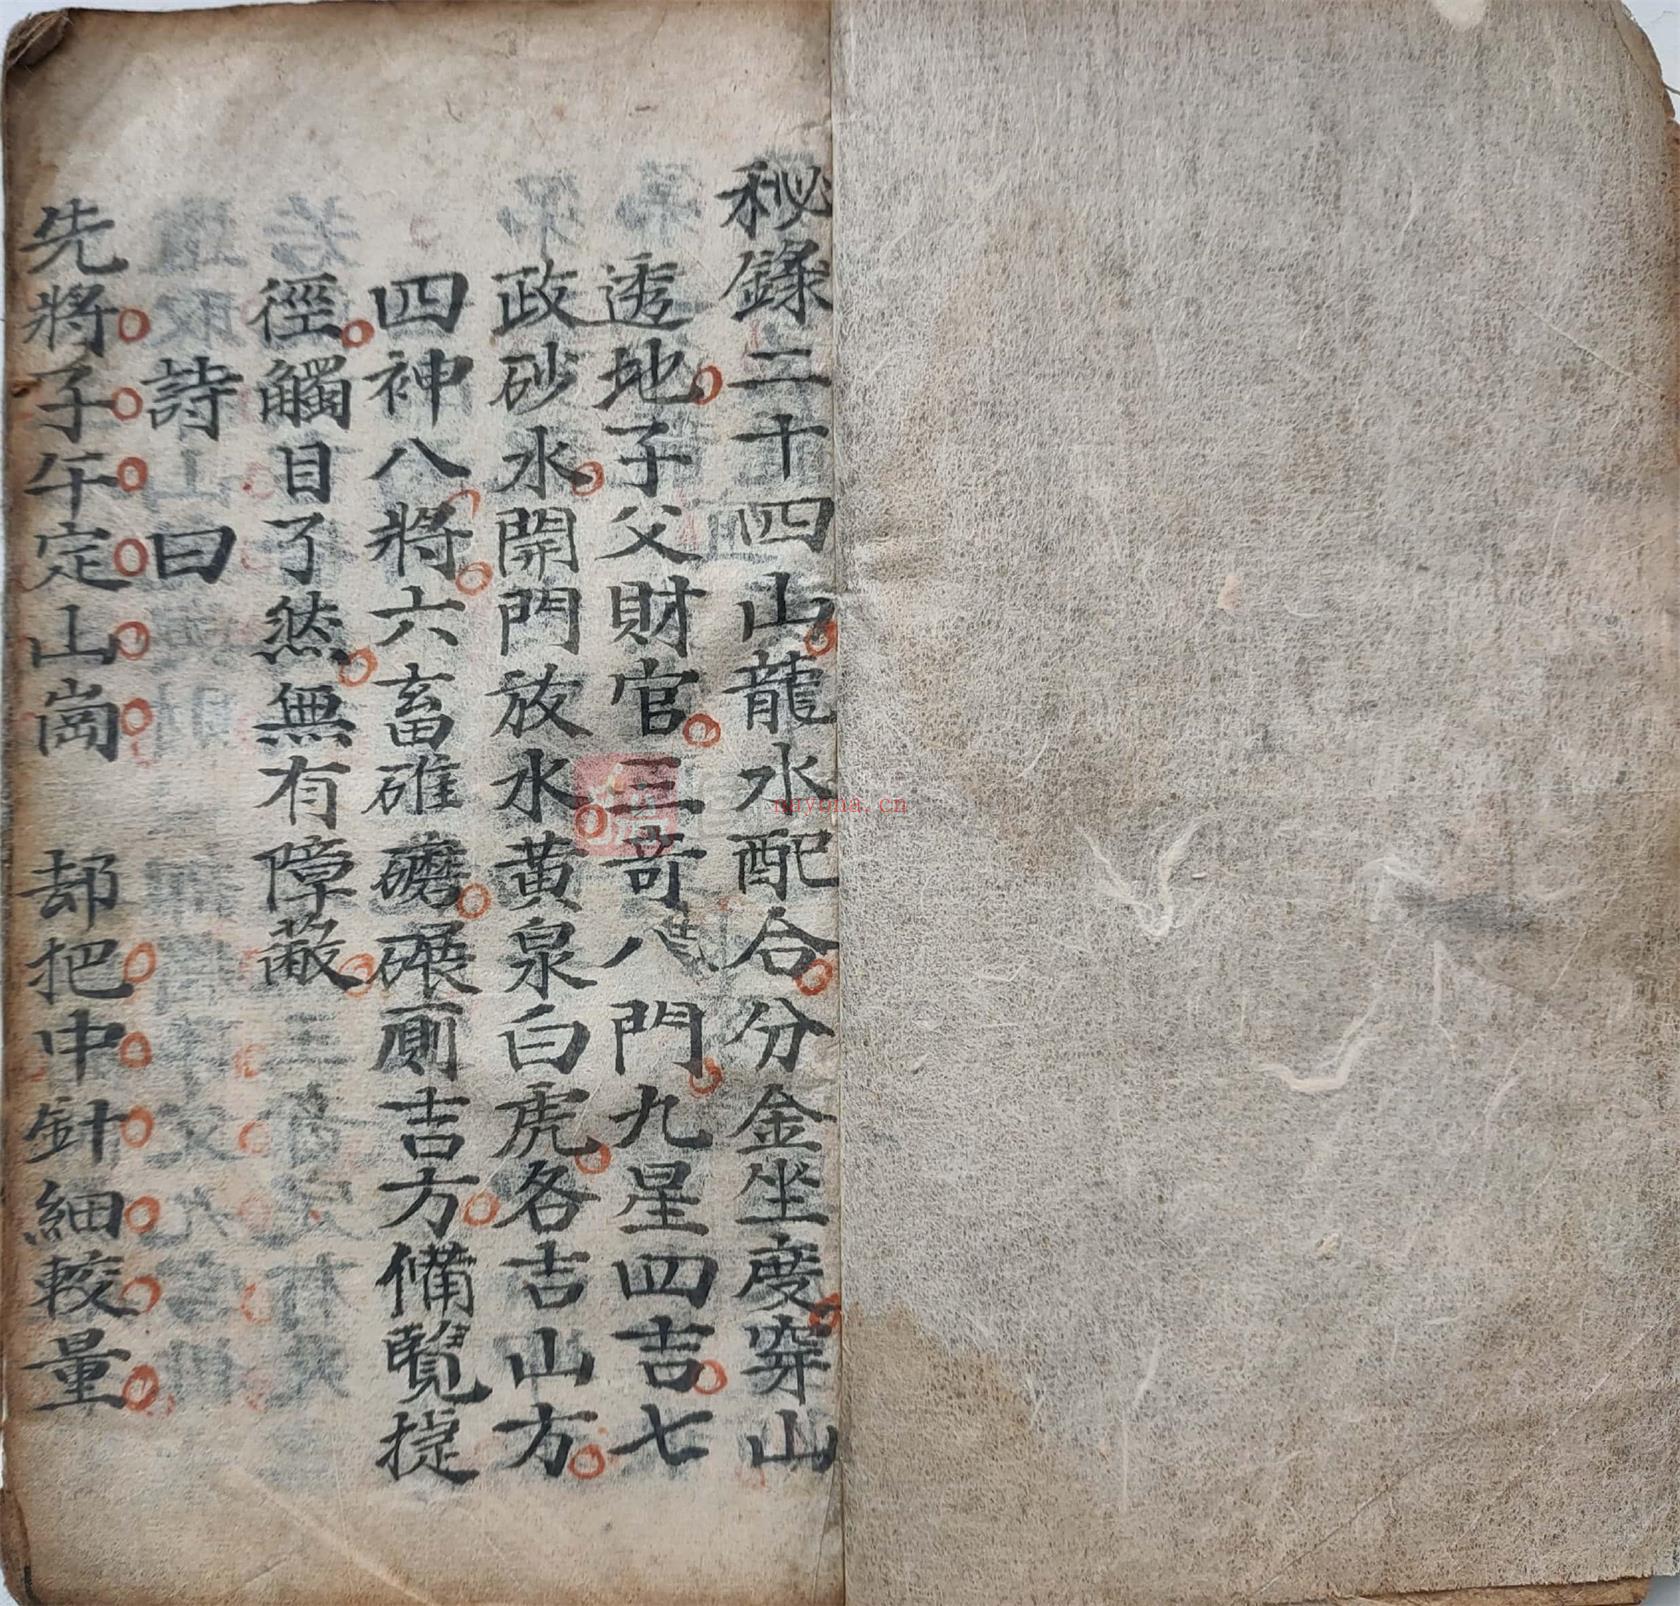 秘錄二十四山龍水配合分金坐度穿山
透地子父財官三奇八門九星四吉七
政砂水開門放水黃泉白虎各吉山方
四神八將六畜碓磨碾厠吉方備覽捷
徑觸目了然無有障蔽
詩曰
先將子午定山崗 却把中針細較量
nayona.cn